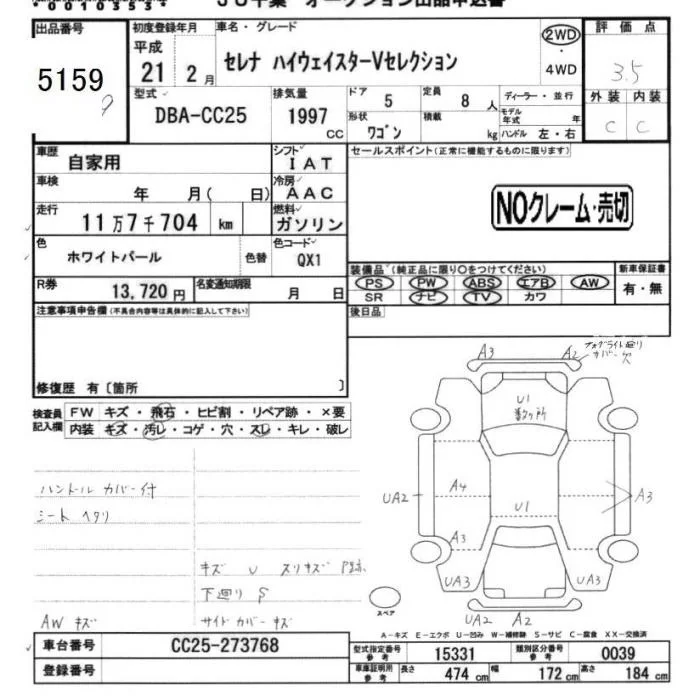 00103534 JU千葉 オークション出品申込書
出品番号
5159
初度登録年月
平成
21 年 2 月
車名・グレード
セレナ ハイウェイスターVセレクション
2WD
・
4WD
評価点
3.5
外装 内装
C C
型式
DBA-CC25
排気量
1997 CC
ドア 5
定員 8 人
ディーラー・並行
モデル年式 年
形状 ワゴン
積載 kg
ハンドル 左・右
車歴 自家用
シフト IAT
セールスポイント(正常に機能するものに限ります)
車検 年 月( 日)
冷房 AAC
NOクレーム・売切
走行 11万7千704 km
燃料 ガソリン
色 ホワイトパール 色替
色コード QX1
装備品(純正品に限り〇をつけてください)
新車保証書
PS PW ABS エアB AW
有・無
SR ナビ TV カワ
R券 13,720 円
名変通知期限 月 日
後日品
注意事項申告欄(不具合内容等は具体的に記入して下さい)
修復歴 有〔箇所 〕
検査員記入欄
FW キズ・飛石・ヒビ割・リペア跡・×要
内装 キズ・汚レ・コゲ・穴・スレ・キレ・破レ
ハンドル カバー付
シート ヘタリ
キズ U スリキズ P跡
下廻り S
AW キズ
サイドカバー キズ
A3
A2
フォグライト廻り
カバー欠
U1
数ヶ所
UA2
A4
U1
A3
A3
UA3
UA3
スペア
UA2
A2
A-キズ E-エクボ U-凹み W-補修跡 S-サビ C-腐食 XX-交換済
車台番号 CC25-273768
型式指定番号 参考 15331
類別区分番号 参考 0039
登録番号
車庫証明用 参考
長さ 474 cm
幅 172 cm
高さ 184 cm